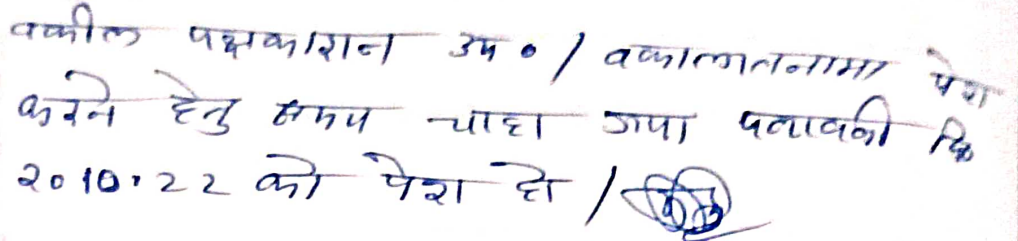 वकील पक्षकारान उप० / वकालतनामा पेश
करने हेतु समय चाहा गया पत्रावली दि
20.10.22 को पेश हो /